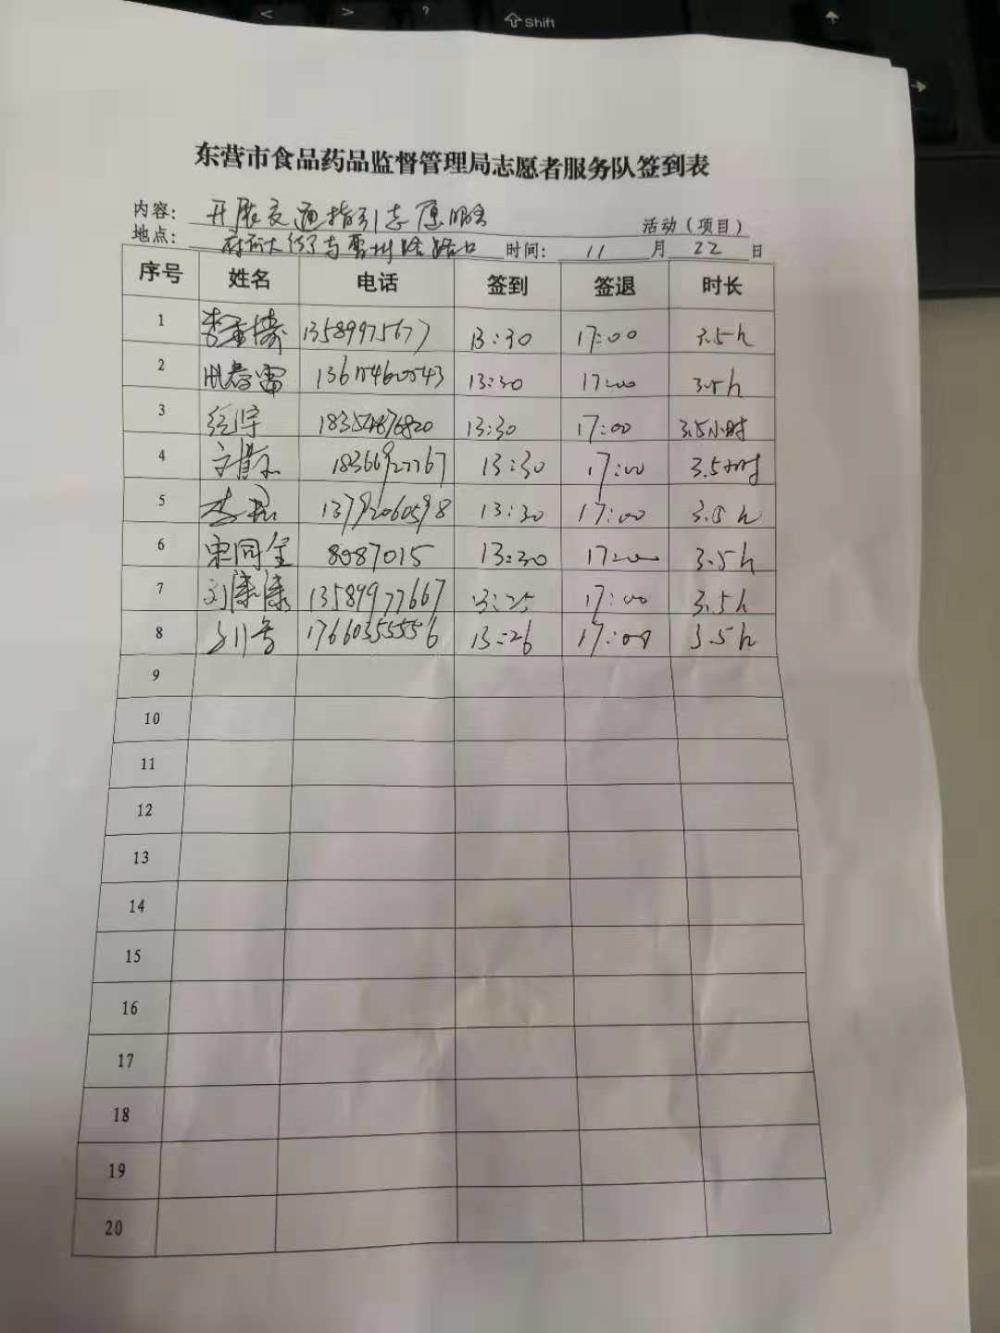 < > ? ⇧Shift
东营市食品药品监督管理局志愿者服务队签到表
内容: 开展交通指引志愿服务 活动（项目）
地点: 府前大街与曹州路路口 时间: 11 月 22 日
序号 姓名 电话 签到 签退 时长
1 13589975677 13:30 17:00 3.5h
2 13:30 17:00 3.5h
3 18354876820 13:30 17:00 3.5小时
4 18366927767 13:30 17:00 3.5小时
5 李磊 13792060598 13:30 17:00 3.5h
6 宋同全 8087015 13:30 17:00 3.5h
7 刘濛濛 13589977667 13:25 17:00 3.5h
8 17660355556 13:26 17:00 3.5h
9
10
11
12
13
14
15
16
17
18
19
20